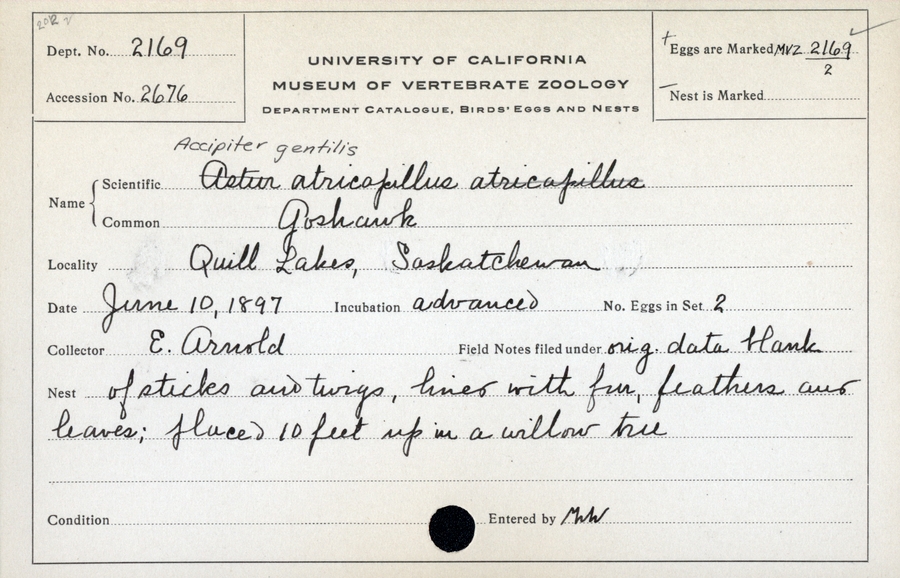 Dept. No. 2169
Accession No. 2676
UNIVERSITY OF CALIFORNIA
MUSEUM OF VERTEBRATE ZOOLOGY
DEPARTMENT CATALOGUE, BIRDS' EGGS AND NESTS
+ Eggs are Marked MVZ 2169/2
– Nest is Marked
Accipiter gentilis
Name
Scientific Astur atricapillus atricapillus
Common Goshawk
Locality Quill Lakes, Saskatchewan
Date June 10, 1897 Incubation advanced No. Eggs in Set 2
Collector E. Arnold Field Notes filed under orig. data blank
Nest of sticks and twigs, lined with fur, feathers and
leaves; placed 10 feet up in a willow tree
Condition Entered by